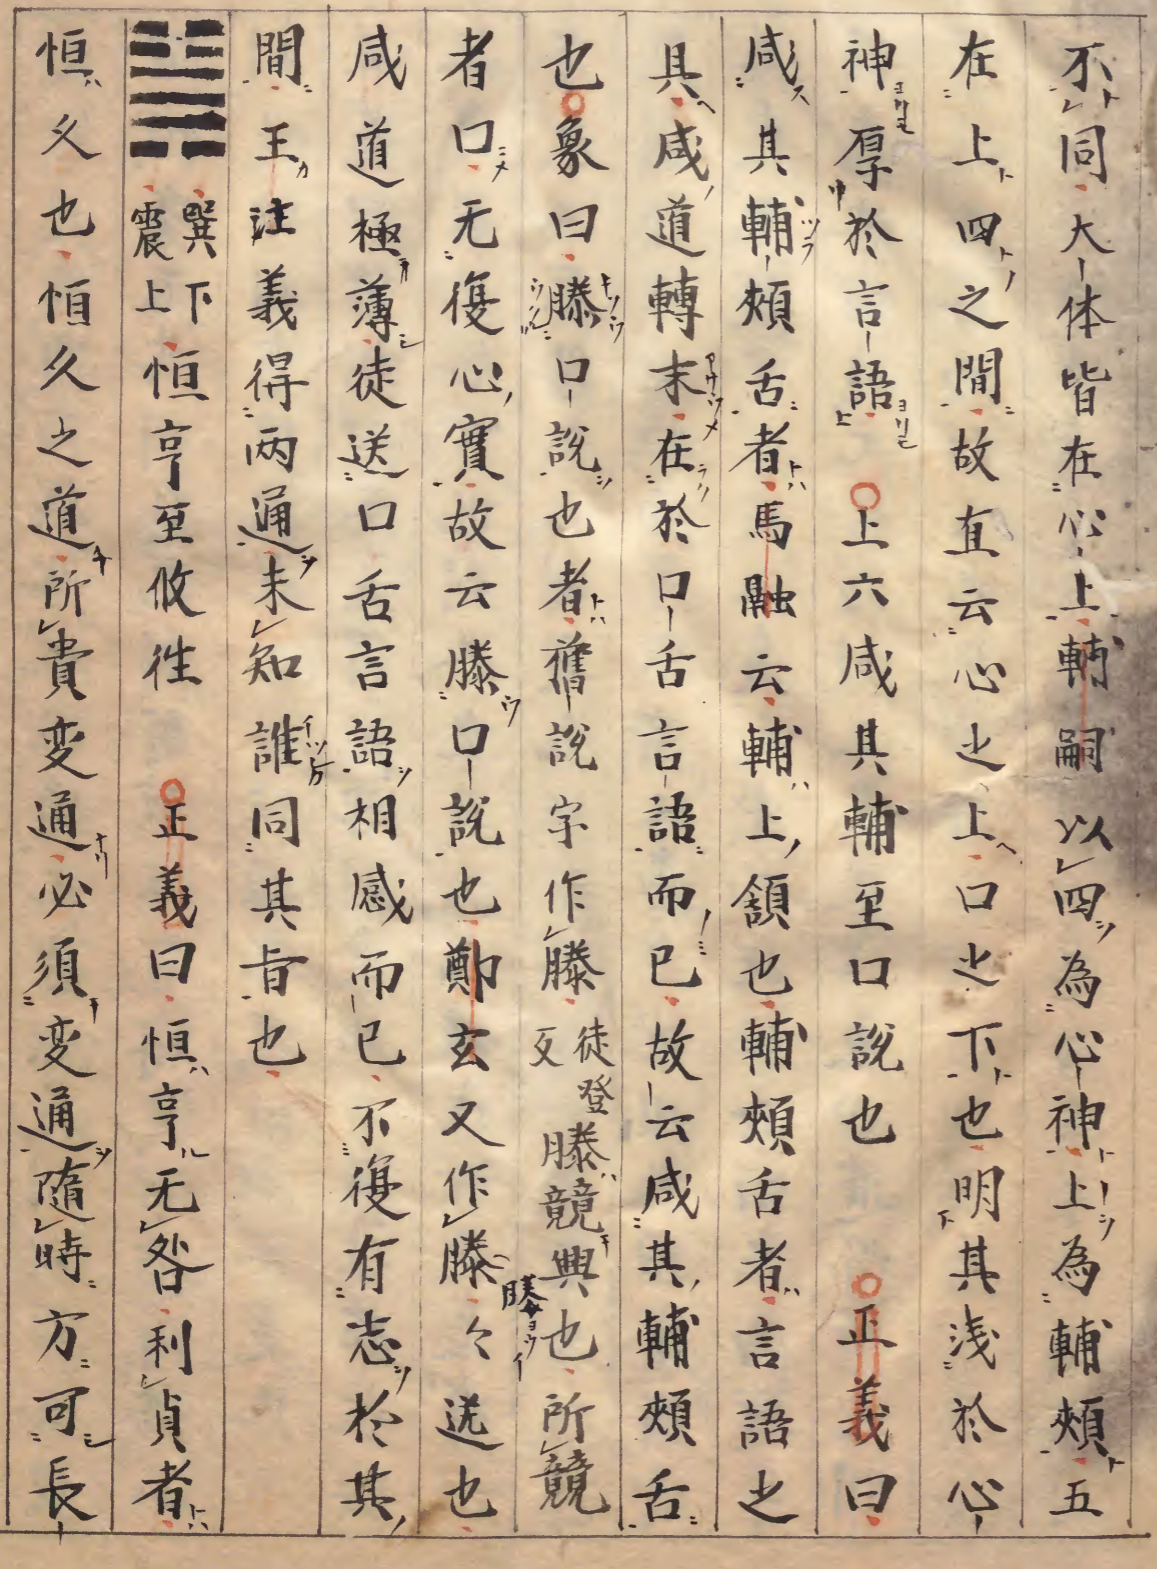 不同大体皆在心上輔嗣以四為心神上為輔頰五
在上四之間故直云心之上口之下也明其浅於心
神厚於言語〇上六咸其輔至口說也〇正義曰
咸其輔頰舌者馬融云輔上頷也輔頰舌者言語之
具咸道轉末在於口舌言語而已故云咸其輔頰舌
也〇象曰滕口說也者舊說字作滕徒登反滕競與也所競
者口无復心實故云滕口說也鄭玄又作滕々送也
咸道極薄徒送口舌言語相感而已不復有志於其
間王注義得两通未知誰同其旨也
䷟巽下震上恒亨至攸往〇正義曰恒亨无咎利貞者
恒久也恒久之道所貴変通必須変通随時方可長